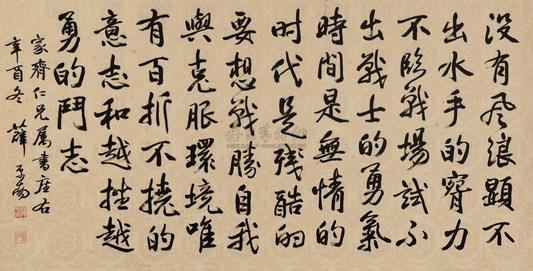 没有風浪顯不
出水手的膂力
不臨戰場試不
出戰士的勇氣
時間是無情的
时代是残酷的
要想戰勝自我
與克服環境唯
有百折不撓的
意志和越挫越
勇的鬥志
家齊仁兄属書座右
辛酉冬 薛平南